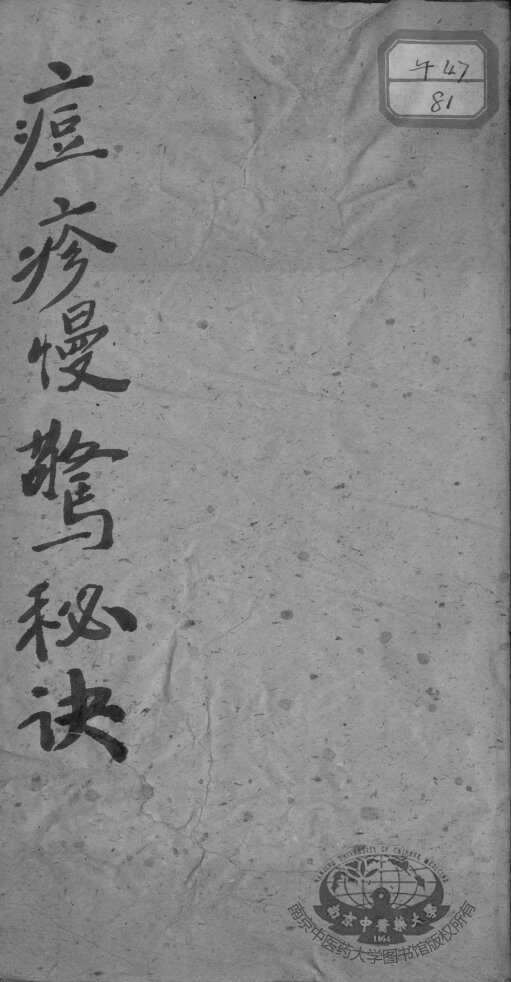 痘疹慢驚秘诀
午47
81
NANJING UNIVERSITY OF CHINESE MEDICINE
南京中醫藥大學
1954
南京中医药大学图书馆版权所有